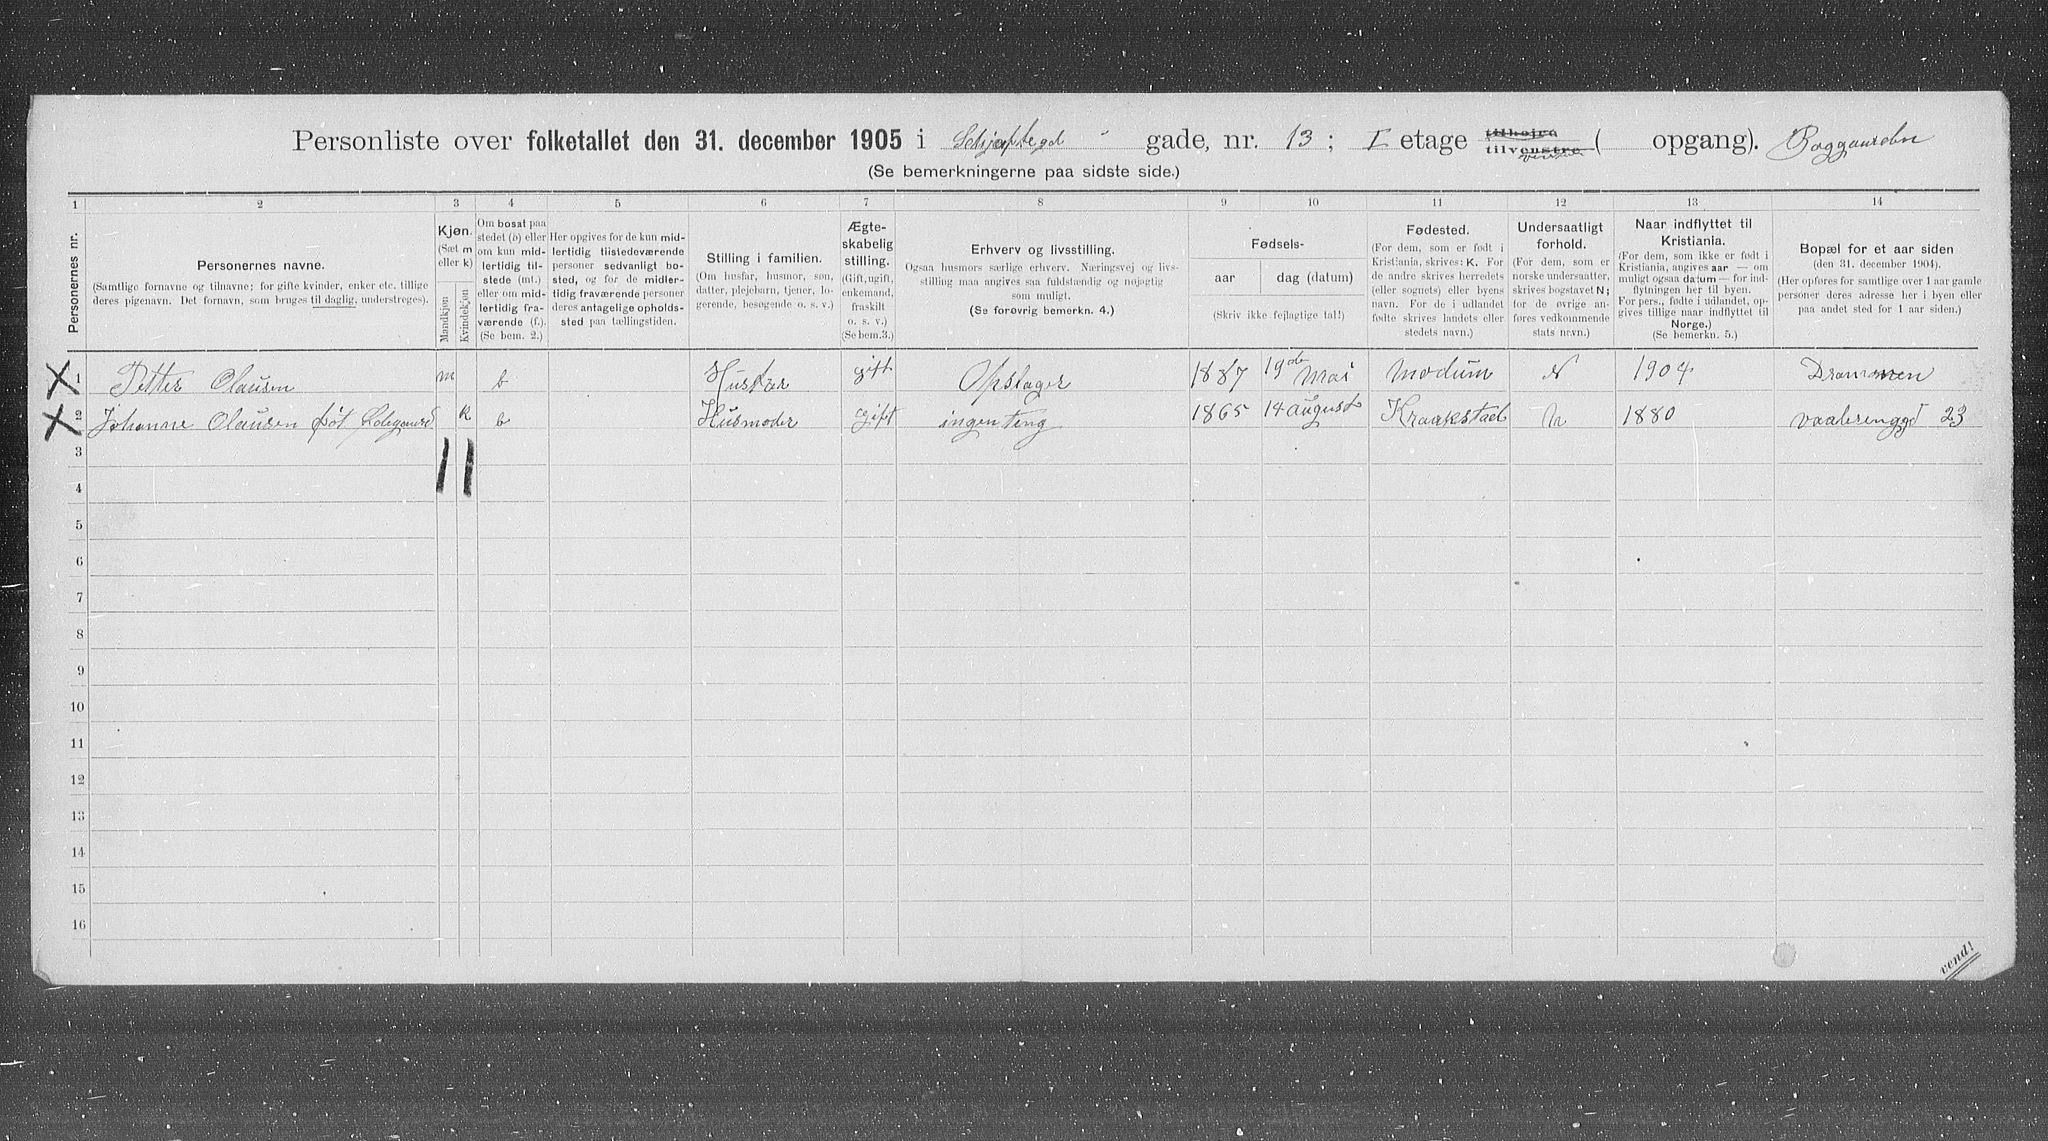 Personliste over folketallet den 31. december 1905 i gade, nr. 13; I etage tilhøire tilvenstre ( opgang).
(Se bemerkningerne paa sidste side.)
1 2 3 4 5 6 7 8 9 10 11 12 13 14
Personernes nr.
Personernes navne.
(Samtlige fornavne og tilnavne; for gifte kvinder, enker etc. tillige
deres pigenavn. Det fornavn, som bruges til daglig, understreges).
Kjøn.
(Sæt m
eller k)
Mandkjøn
Kvindekjøn
Om bosat paa
stedet (b) eller
om kun mid-
lertidig til-
stede (mt.)
eller om mid-
lertidig fra-
værende (f.)
(Se bem. 2.)
Her opgives for de kun mid-
lertidig tilstedeværende
personer sedvanligt bo-
sted, og for de midler-
tidig fraværende personer
deres antagelige opholds-
sted paa tællingstiden.
Stilling i familien.
(Om husfar, husmor, søn,
datter, plejebarn, tjener, lo-
gerende, besøgende o. s. v.)
Ægte-
skabelig
stilling.
(Gift, ugift,
enkemand,
fraskilt
o. s. v.)
(Se bem. 3.)
Erhverv og livsstilling.
Ogsaa husmors særlige erhverv. Næringsvej og livs-
stilling maa angives saa fuldstændig og nøjagtig
som muligt.
(Se forøvrig bemerkn. 4.)
Fødsels-
aar
dag (datum)
(Skriv ikke fejlagtige tal!)
Fødested.
(For dem, som er født i
Kristiania, skrives: K. For
de andre skrives herredets
(eller sognets) eller byens
navn. For de i udlandet
fødte skrives landets eller
stedets navn.)
Undersaatligt
forhold.
(For dem, som er
norske undersaatter,
skrives bogstavet N;
for de øvrige an-
føres vedkommende
stats navn.)
Naar indflyttet til
Kristiania.
(For dem, som ikke er født i
Kristiania, angives aar — om
muligt ogsaa datum — for ind-
flytningen her til byen.
For pers., fødte i udlandet, op-
gives tillige naar indflyttet til
Norge.)
(Se bemerkn. 5.)
Bopæl for et aar siden
(den 31. december 1904).
(Her opføres for samtlige over 1 aar gamle
personer deres adresse her i byen eller
paa andet sted for 1 aar siden.)
1 Petter Olausen m b Husfar gift Opslager 1887 19de Mai Modum N 1904 Drammen
2 Johanne Olausen føt k b Husmoder gift ingenteng 1865 14 august Kraakstad N 1880 vaalerenggd 23
3
4
5
6
7
8
9
10
11
12
13
14
15
16
vend!